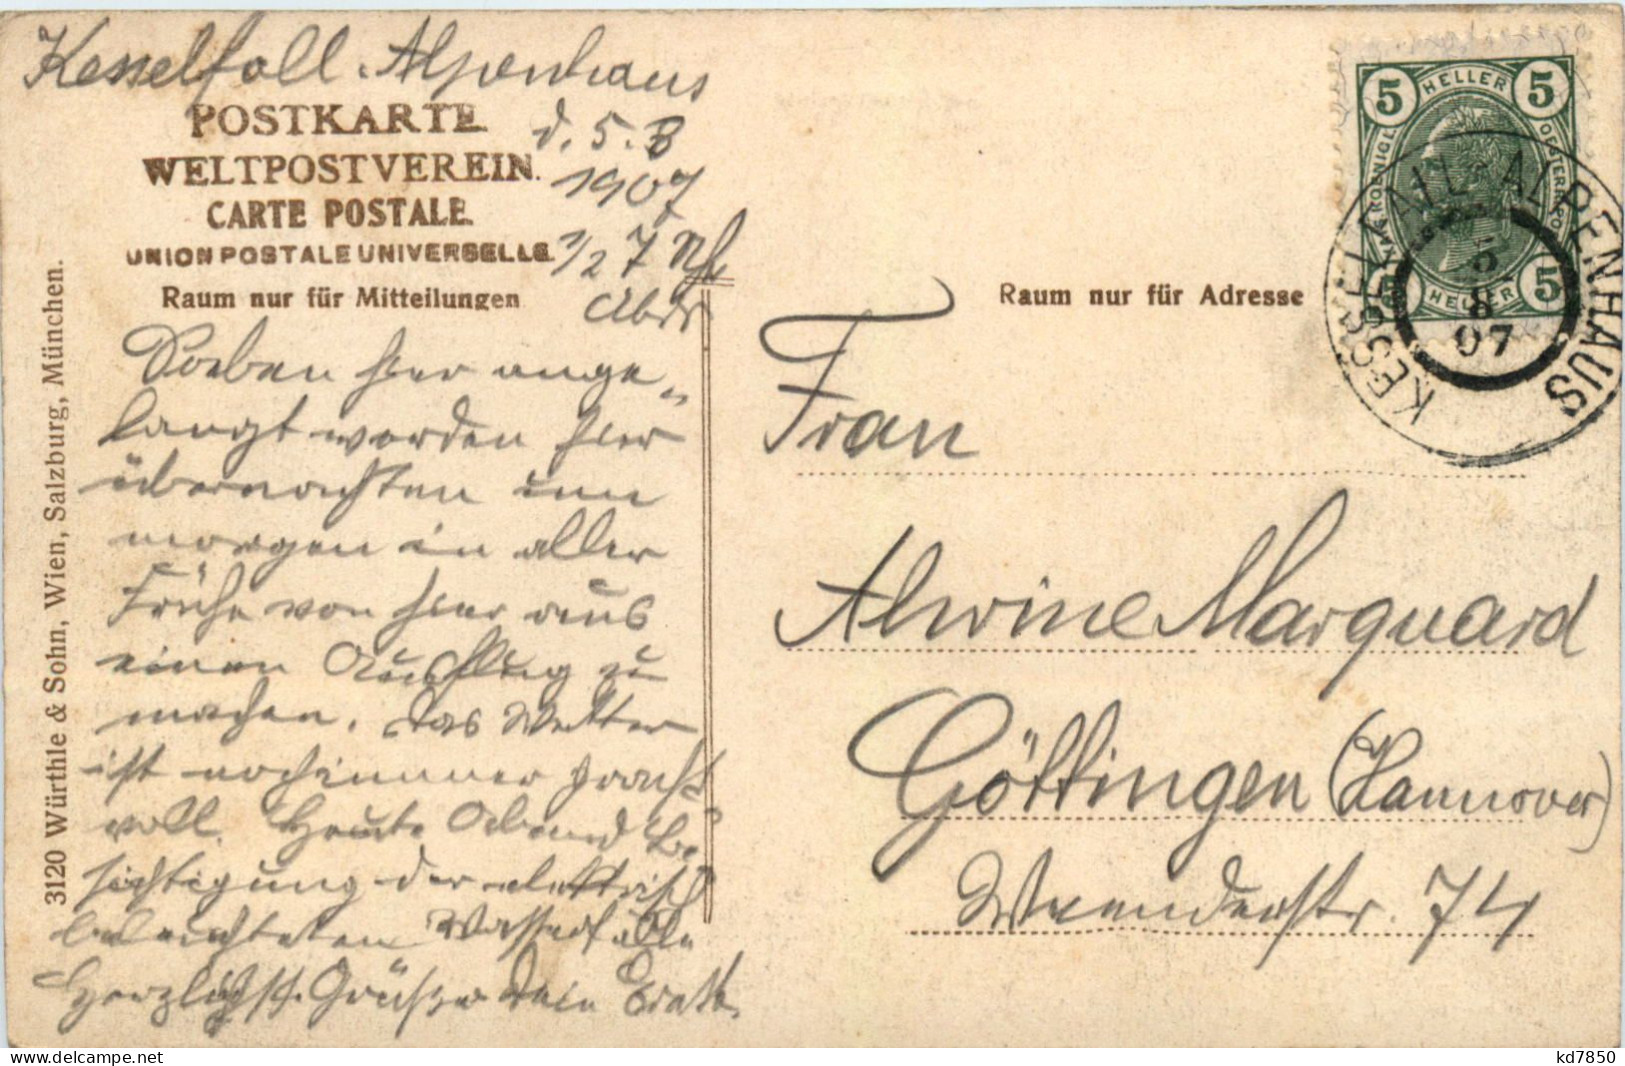 Kesselfall-Alpenhaus
POSTKARTE
WELTPOSTVEREIN.
CARTE POSTALE.
UNION POSTALE UNIVERSELLE.
Raum nur für Mitteilungen
d. 5. 8
1907
1/2 7 Uhr
Abds
Soeben hier ange„
langt werden hier
übernachten um
morgen in aller
Frühe von hier aus
einen Ausflug zu
machen. das Wetter
ist noch immer pracht
voll. Heute Abend Be
sichtigung der elektrisch
beleuchteten Wasserfälle
Herzlichst. Grüße Dein
3120 Würthle & Sohn, Wien, Salzburg, München.
Raum nur für Adresse
Frau
Alwine Marquard
Göttingen (Hannover)
Weenderstr. 74
5 HELLER 5
5 HELLER 5
KESSELFALL-ALPENHAUS
5
8
07
kd7850